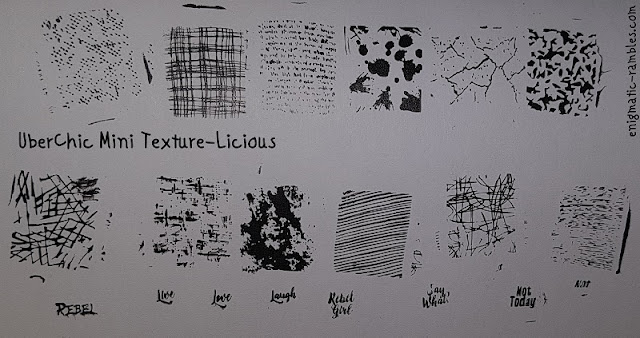 enigmatic-rambles.com
UberChic Mini Texture-Licious
REBEL
Live
Love
Laugh
Rebel
Girl
Say
What!
Not
Today